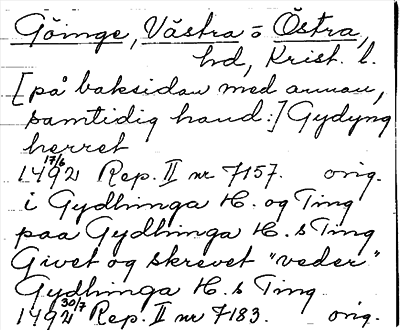 Göinge, Västra o Östra,
hd, Krist. l.
[på baksidan med annan,
samtidig hand:] Gydyng
herret
1492 17/6 Rep. II nr 7157. orig.
i Gydhinga H. og Ting
paa Gydhinga H.s Ting
Givet og skrevet "veder"
Gydhinga H.s Ting
1492 30/7 Rep. II nr 7183. orig.